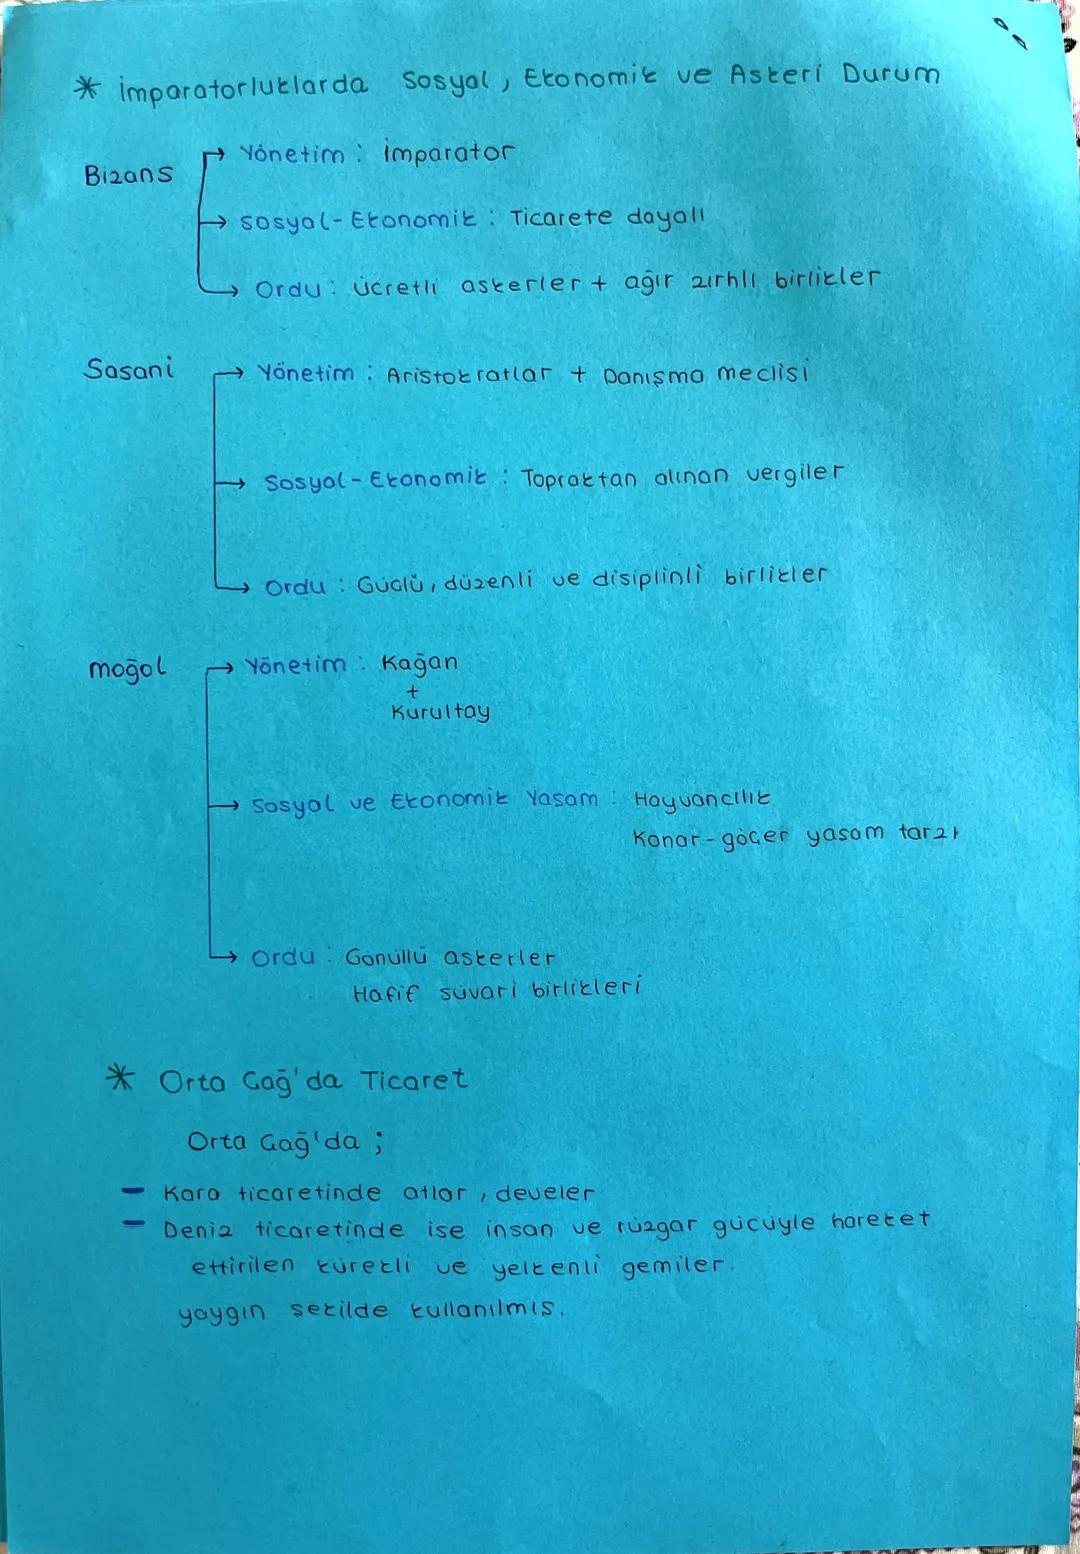 * İmparatorluklarda Sosyal, Ekonomik ve Askeri Durum
Bizans
→ Yönetim : İmparator
→ Sosyal-Ekonomik : Ticarete dayalı
→ Ordu : ücretli askerler + ağır zırhlı birlikler
Sasani
→ Yönetim : Aristokratlar + Danışma meclisi
→ Sosyal-Ekonomik : Topraktan alınan vergiler
→ Ordu : Güçlü, düzenli ve disiplinli birlikler
moğol
→ Yönetim : Kağan
+
Kurultay
→ Sosyal ve Ekonomik Yaşam : Hayvancılık
Konar-göçer yaşam tarzı
→ Ordu : Gönüllü askerler
Hafif süvari birlikleri
* Orta Çağ'da Ticaret
Orta Çağ'da ;
- Kara ticaretinde atlar, develer
- Deniz ticaretinde ise insan ve rüzgar gücüyle hareket
ettirilen kürekli ve yelkenli gemiler.
yaygın şekilde kullanılmış.